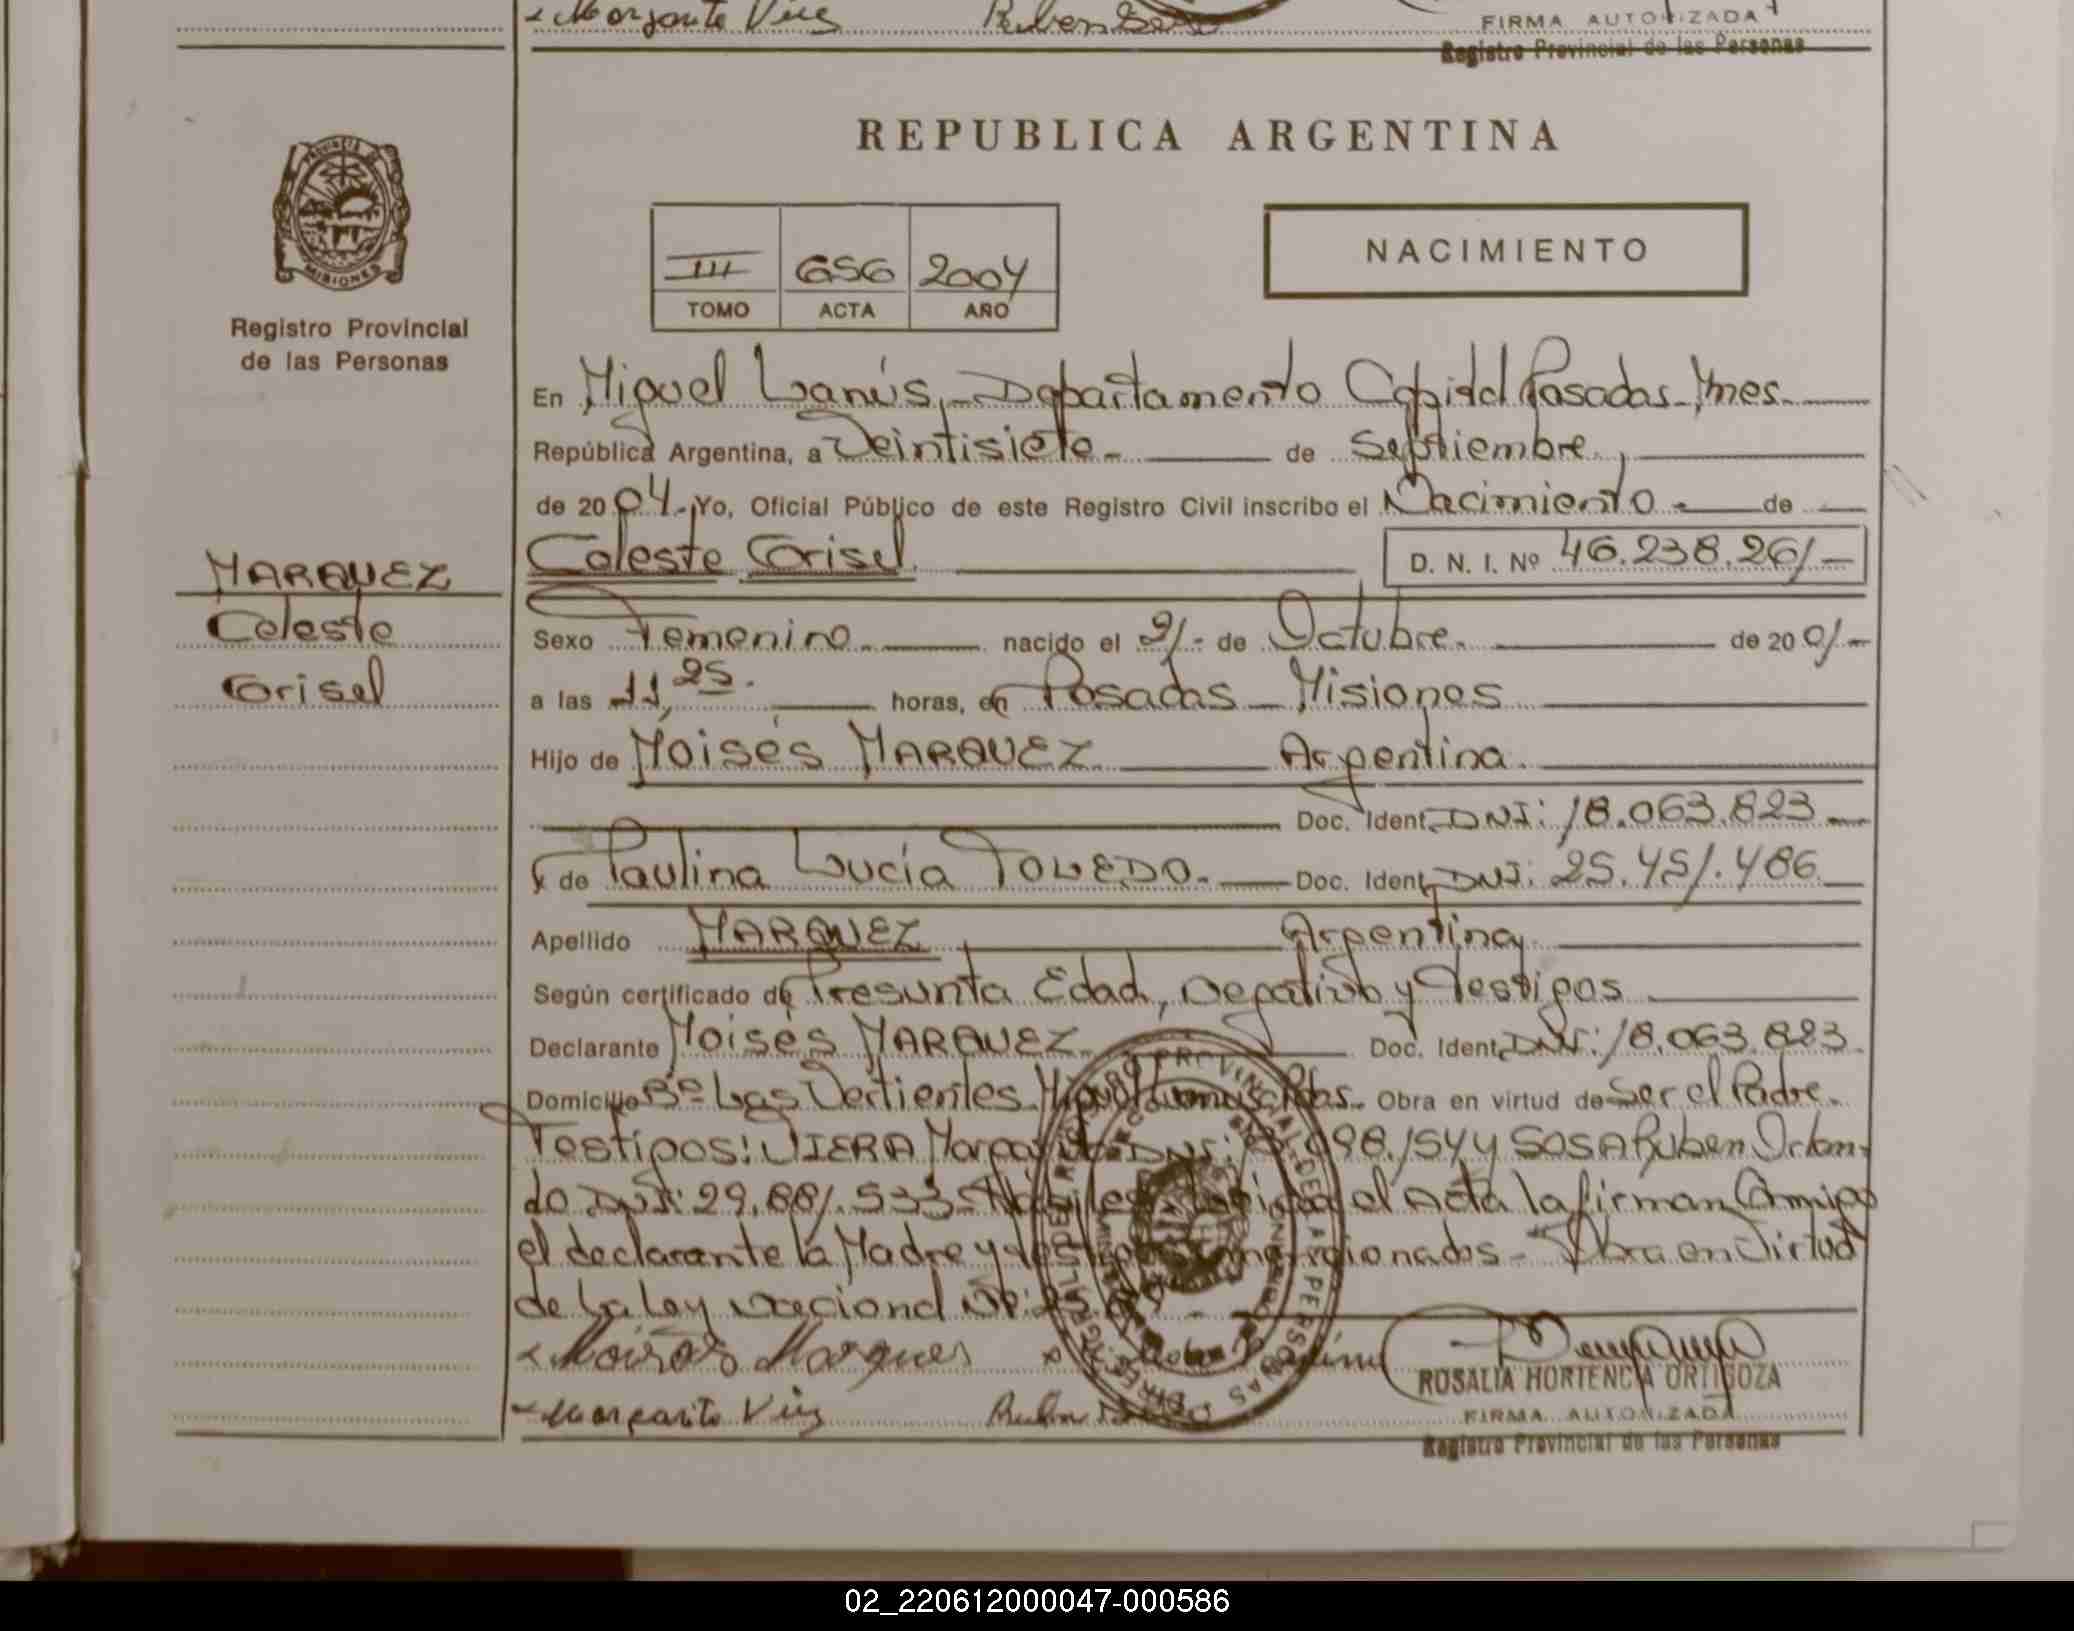 Margarita Viera Ruben Sosa
FIRMA AUTORIZADA
Registro Provincial de las Personas
REPUBLICA ARGENTINA
PROVINCIA DE MISIONES
Registro Provincial
de las Personas
III 656 2004
TOMO ACTA AÑO
NACIMIENTO
En Miguel Lanús, Departamento Capital Posadas Mnes.
República Argentina, a Veintisiete de Septiembre
de 2004. Yo, Oficial Público de este Registro Civil inscribo el Nacimiento de
Celeste Corisel D. N. I. Nº 46.238.261
MARQUEZ
Celeste
Corisel
Sexo Femenino nacido el 21 de Octubre de 2001
a las 11,25 horas, en Posadas Misiones
Hijo de Moisés MARQUEZ Argentina
Doc. Ident. DNI: 18.063.823
y de Paulina Lucía TOLEDO. Doc. Ident. DNI: 25.451.486
Apellido MARQUEZ Argentina
Según certificado de Presunta Edad, Negativo y Testigos
Declarante Moisés MARQUEZ Doc. Ident. DNI: 18.063.823
Domicilio Bº Las Vertientes Miguel Lanus Pdas. Obra en virtud de Ser el Padre.
Testigos: VIERA Margarita DNI: 998.154 y SOSA Ruben Orlan-
do DNI: 29.881.533 el Acta la firman Conmigo
el declarante la Madre y testigos mencionados - Obra en Virtud
de la Ley Nacional Nº: 25.
Moises Marques
ROSALIA HORTENCIA ORTIGOZA
Margarita Ruben
FIRMA AUTORIZADA
Registro Provincial de las Personas
02_220612000047-000586